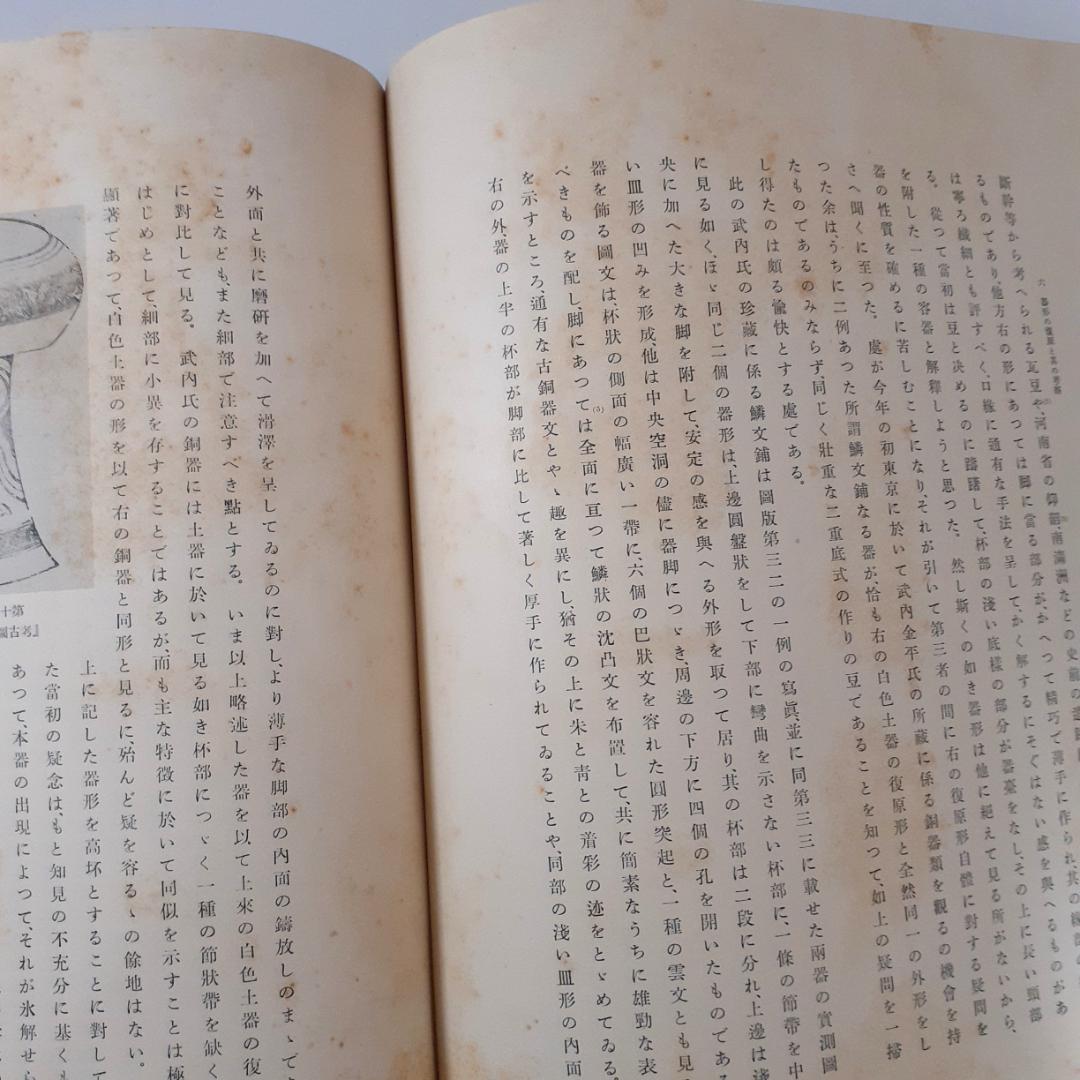 六　器形の復原と其の考察
斷幹等から考へられる瓦豆や、河南省の仰韶、南滿洲などの史前の遺
るものであり、他方右の形にあつては脚に當る部分が、かへつて精巧で薄手に作られ、其の
は寧ろ纎細とも許すべく、口緣に通有な手法を呈して、かく解するにそぐはない感を與へるものがあ
る。從つて當初は豆と決めるのに躊躇して、杯部の淺い底樣の部分が器臺をなし、その上に長い頸部
を附した一種の容器と解釋しようと思つた。然し斯くの如き器形は他に絕えて見る所がないから、
器の性質を確めるに苦しむことになり、それが引いて第三者の間に右の復原形自體に對する疑問を
さへ聞くに至つた。處が今年の初東京に於いて武內金平氏の所藏に係る銅器類を觀るの機會を持
つた余は、うちに二例あつた所謂鱗文鋪なる器が、恰も右の白色土器の復原形と全然同一の外形をし
たものであるのみならず、同じく壯重な二重底式の作りの豆であることを知つて、如上の疑問を一掃
し得たのは頗る愉快とする處である。
此の武內氏の珍藏に係る鱗文鋪は圖版第三二の一例の寫眞、並に同第三三に載せた兩器の實測圖
に見る如く、ほゞ同じ二個の器形は、上邊圓盤狀をして下部に彎曲を示さない杯部に、一條の節帶を中
央に加へた大きな脚を附して、安定の感を與へる外形を取つて居り、其の杯部は二段に分れ、上邊は淺
い皿形の凹みを形成、他は中央空洞の儘に器脚につゞき、周邊の下方に四個の孔を開いたものである
器を飾る圖文は、杯狀の側面の幅廣い一帶に、六個の巴狀文を容れた圓形突起と、一種の雲文とも見
べきものを配し、脚にあつては(5)全面に亘つて鱗狀の沈凸文を布置して、共に簡素なうちに雄勁な表
を示すところ、通有な古銅器文とやゝ趣を異にし、猶その上に朱と青との着彩の迹をとゞめてゐる。
右の外、器の上半の杯部が脚部に比して著しく厚手に作られてゐることや、同部の淺い皿形の內面
外面と共に磨硏を加へて滑澤を呈してゐるのに對し、より薄手な脚部の內面の鑄放しのまゝで
ことなども、また細部で注意すべき點とする。いま以上略述した器を以て上來の白色土器の復
に對比して見る。武內氏の銅器には土器に於いて見る如き杯部につゞく一種の節狀帶を缺く
はじめとして、細部に小異を存することではあるが、而も主な特徵に於いて同似を示すことは極
顯著であつて、白色土器の形を以て右の銅器と同形と見るに、殆んど疑を容るゝの餘地はない。
上に記した器形を高坏とすることに對して
た當初の疑念は、もと知見の不充分に基くも
あつて、本器の出現によつて、それが氷解せら
十第
圖古考』